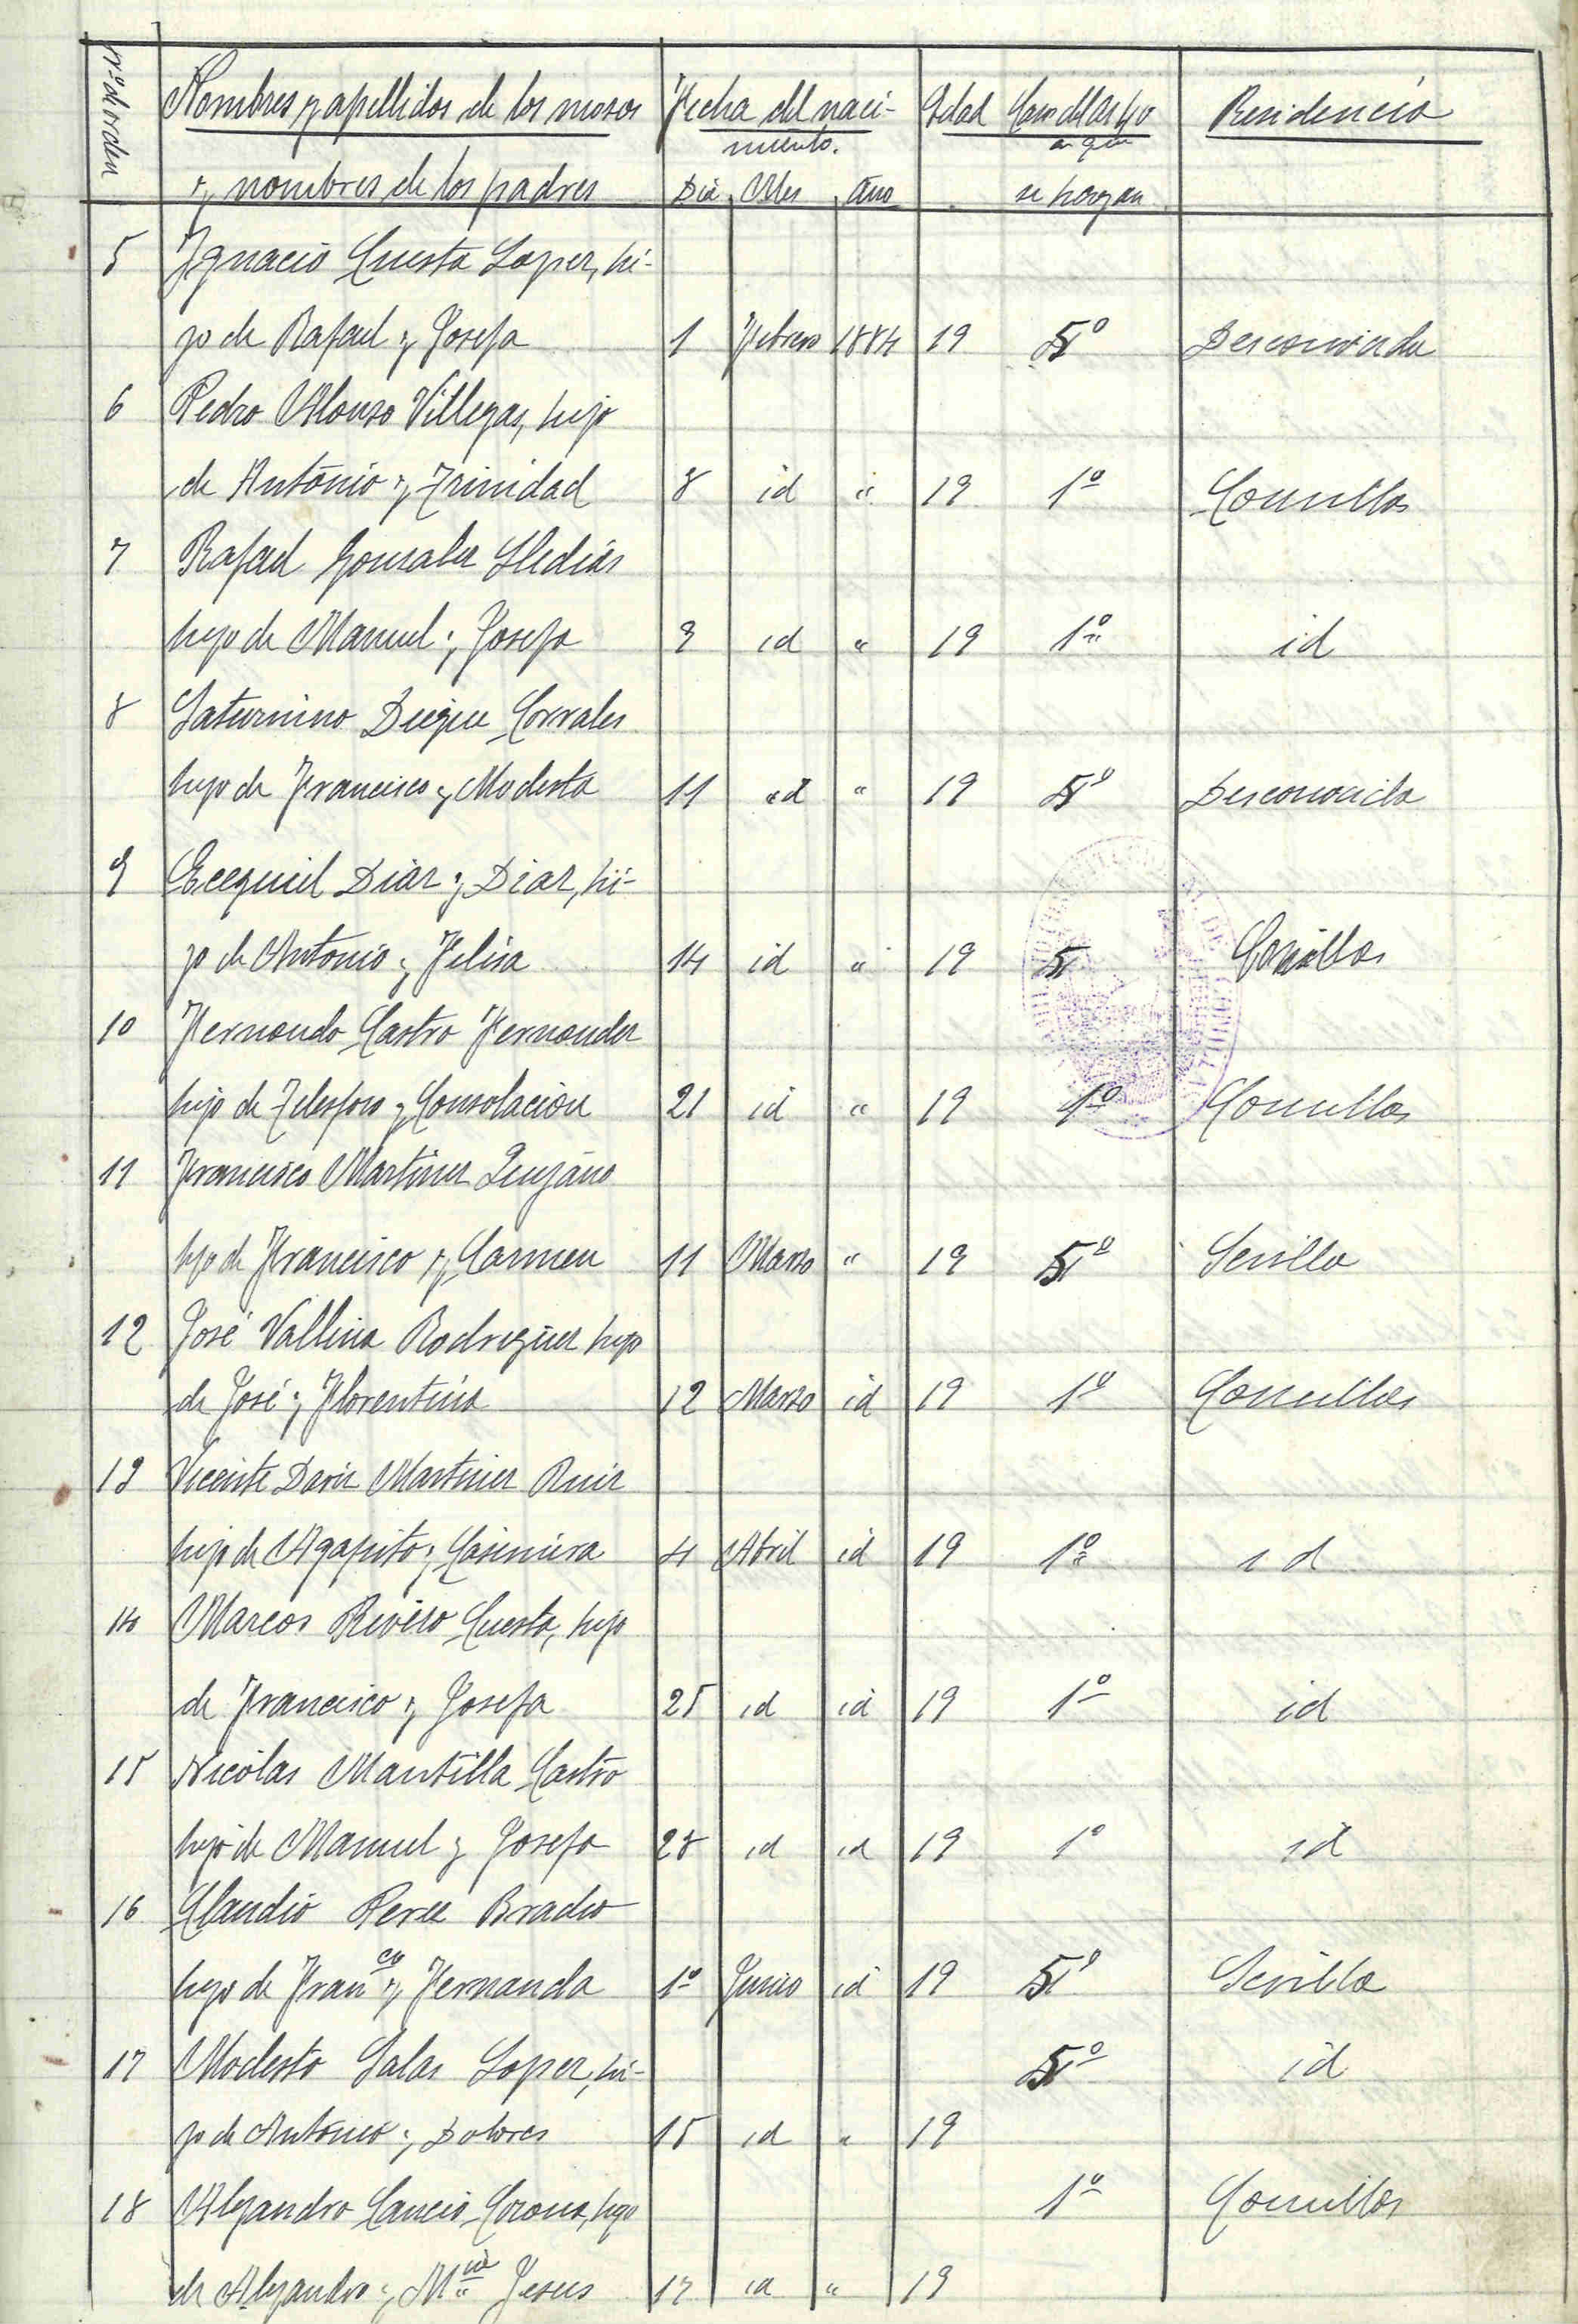 Nº de orden Nombres y apellidos de los mozos Fecha del naci- Edad Caso del Art 40 Residencia
miento. en que
y nombres de los padres Dia Mes Año se hayan
5 Ygnacio Cuesta Lopez, hi-
jo de Rafael y Josefa 1 Febrero 1884 19 5º Desconocida
6 Pedro Alonso Villegas, hijo
de Antonio y Trinidad 8 id " 19 1º Comillas
7 Rafael Gonzalez
hijo de Manuel y Josefa 9 id " 19 1º id
8 Saturnino Diegue Corrales
hijo de Francisco y Modesta 11 id " 19 5º Desconocida
9 Ecequiel Diaz y Diaz, hi-
jo de Antonio y Felisa 14 id " 19 5 Comillas
10 Fernando Castro Fernandez
hijo de Telesforo y Consolacion 21 id " 19 1º Comillas
11 Francisco Martinez Quijano
hijo de Francisco y Carmen 11 Marzo " 19 5º Sevilla
12 José Vallina Rodriguez hijo
de José y Florentina 12 Marzo id 19 1º Comillas
13 Vicente Martinez Ruiz
hijo de Agapito y Casimira 4 Abril id 19 1º id
14 Marcos Rivero Cuesta, hijo
de Francisco y Josefa 25 id id 19 1º id
15 Nicolas Mantilla Castro
hijo de Manuel y Josefa 28 id id 19 1º id
16 Claudio Perez
hijo de Franco y Fernanda 1º Junio id 19 5º Sevilla
17 Modesto Salas Lopez, hi- 5º id
jo de Antonio y Dolores 15 id " 19
18 Alejandro Cancio Corona, hijo 1º Comillas
de Alejandro y Mª Jesus 17 id " 19